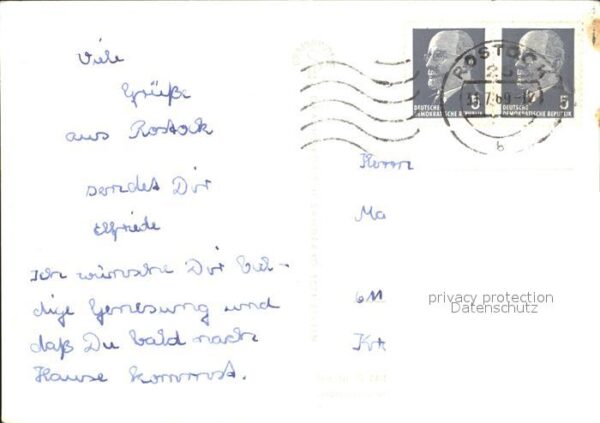 Viele
Grüße
aus Rostock
sendet Dir
Elfriede
Ich wünsche Dir bal-
dige Genesung und
daß Du bald nach
Hause kommst.
5
DEUTSCHE
DEMOKRATISCHE REPUBLIK
5
DEUTSCHE
DEMOKRATISCHE REPUBLIK
ROSTOCK
b
Herrn
Ma
privacy protection
Datenschutz